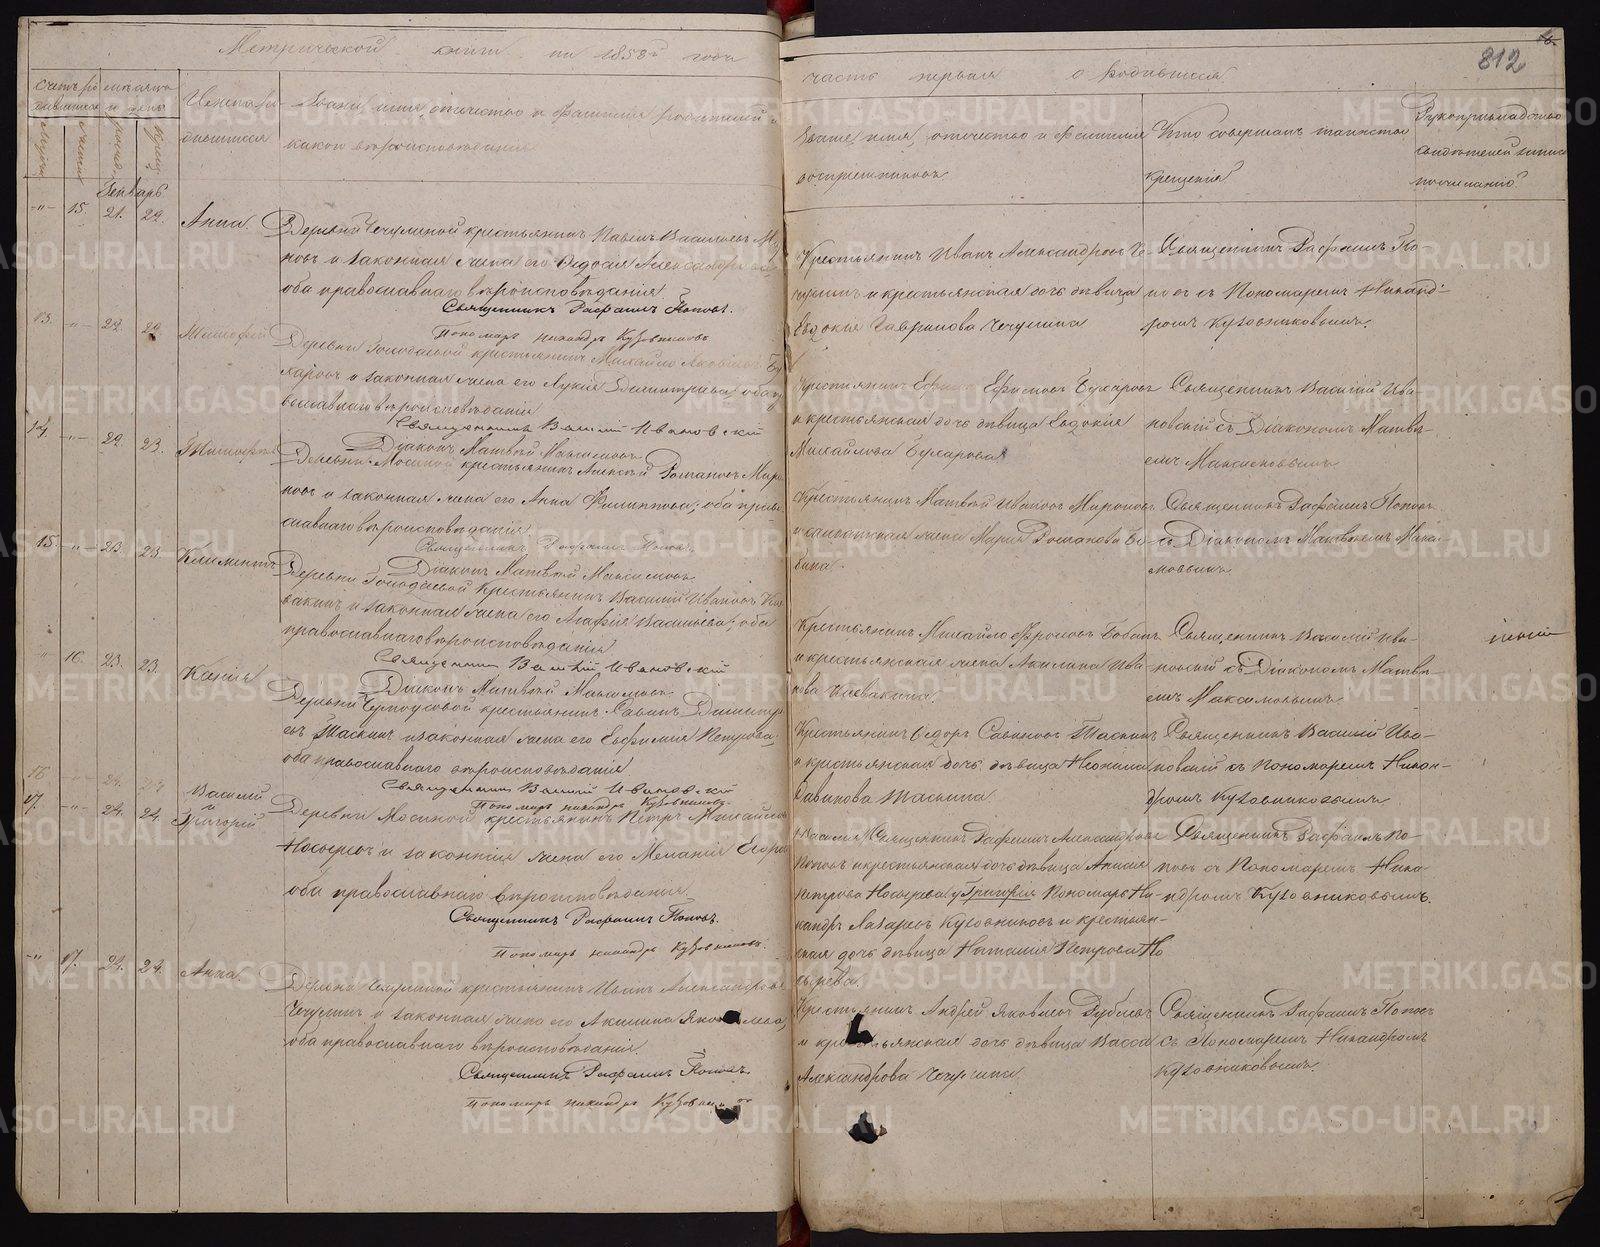 Метрической книги на 1858й годъ
часть первая о родившихся
812
Счетъ ро-
дившихся
Мѣсяцъ
и день
Имена ро-
дившихся
Званіе, имя, отчество и фамилія родителей и
какого вѣроисповѣданія
Званіе, имя, отчество и фамилія
воспріемниковъ
Кто совершалъ таинство
крещенія
Рукоприкладство
свидѣтелей записи
по желанію
Генварь
-"- 15. 21. 22. Анна.
Деревни Чечулиной крестьянинъ Павелъ Васильевъ
новъ и законная жена его Федосія Александрова
оба православнаго вѣроисповѣданія
Священникъ Рафаилъ Поповъ.
Пономарь Никандръ Кузовниковъ
Крестьянинъ Иванъ Александровъ Че-
чулинъ и крестьянская дочь дѣвица
Евдокія Гаврилова Чечулина
Священникъ Рафаилъ По-
повъ съ Пономаремъ Никанд-
ромъ Кузовниковымъ.
13. -"- 22. 22. Тимофей
Деревни Голодаевой крестьянинъ Михайло Яковлевъ Бу-
харовъ и законная жена его Лукія Димитріева оба пра-
вославнаго вѣроисповѣданія
Священникъ Василій Ивановскій
Діаконъ Матвѣй Максимовъ
Крестьянинъ Ефимъ Ефимовъ Бухаровъ
и крестьянская дочь дѣвица Евдокія
Михайлова Бухарова
Священникъ Василій Ива-
новскій съ Діакономъ Матвѣ-
емъ Максимовымъ
14. -"- 22. 23. Тимофей
Деревни Мосиной крестьянинъ Алексѣй Романовъ Миро-
новъ и законная жена его Анна Филиппова; оба право-
славнаго вѣроисповѣданія
Священникъ Рафаилъ Поповъ
Діаконъ Матвѣй Максимовъ
Крестьянинъ Матвѣй Ивановъ Мироновъ
и жена Марія Романова Бо-
бина.
Священникъ Рафаилъ Поповъ
съ Діакономъ Матвѣемъ Макси-
мовымъ
15. -"- 23. 23. Климентъ
Деревни Голодаевой Крестьянинъ Василій Ивановъ Кне-
вакинъ и законная жена его Агафія Васильева; оба
православнаго вѣроисповѣданія
Священникъ Василій Ивановскій
Діаконъ Матвѣй Максимовъ
Крестьянинъ Михайло Фроловъ Бобинъ
и крестьянская жена Акилина Ива-
нова
Священникъ Василій Ива-
новскій съ Діакономъ Матвѣ-
емъ Максимовымъ
-"- 16. 23. 23. Ксенія
Деревни Черноусовой крестьянинъ Савинъ Димитрі-
евъ Таскинъ и законная жена его Евфимія Петрова;
оба православнаго вѣроисповѣданія
Священникъ Василій Ивановскій
Пономарь Никандръ Кузовниковъ
Крестьянинъ Федоръ Савиновъ Таскинъ
и крестьянская дочь дѣвица Неонила
Савинова Таскина
Священникъ Василій Ива-
новскій съ Пономаремъ Никан-
дромъ Кузовниковымъ
16 -"- 24. 24 Василій
и
17. -"- 24. 24. Григорій
Деревни Мосиной крестьянинъ Петръ Михайловъ
Носыревъ и законная жена его Меланія Егорова
оба православнаго вѣроисповѣданія.
Священникъ Рафаилъ Поповъ.
Пономарь Никандръ Кузовниковъ.
Василія Священникъ Рафаилъ Александровъ
Поповъ и крестьянская дочь дѣвица Анисія
Петрова Носырева у Григорія Пономарь Ни-
кандръ Лазаревъ Кузовниковъ и крестьян-
ская дочь дѣвица Наталія Петрова Но-
сырева.
Священникъ Рафаилъ По-
повъ съ Пономаремъ Ника-
ндромъ Кузовниковымъ.
-"- 17. 24. 24. Анна
Деревни Чечулиной крестьянинъ Иванъ Александровъ
Чечулинъ и законная жена его Акилина Яковлева,
оба православнаго вѣроисповѣданія.
Священникъ Рафаилъ Поповъ.
Пономарь Никандръ Кузовниковъ
Крестьянинъ Андрей Яковлевъ Дубневъ
и крестьянская дочь дѣвица Васса
Александрова Чечулина
Священникъ Рафаилъ Поповъ
съ Пономаремъ Никандромъ
Кузовниковымъ.
METRIKI.GASO-URAL.RU